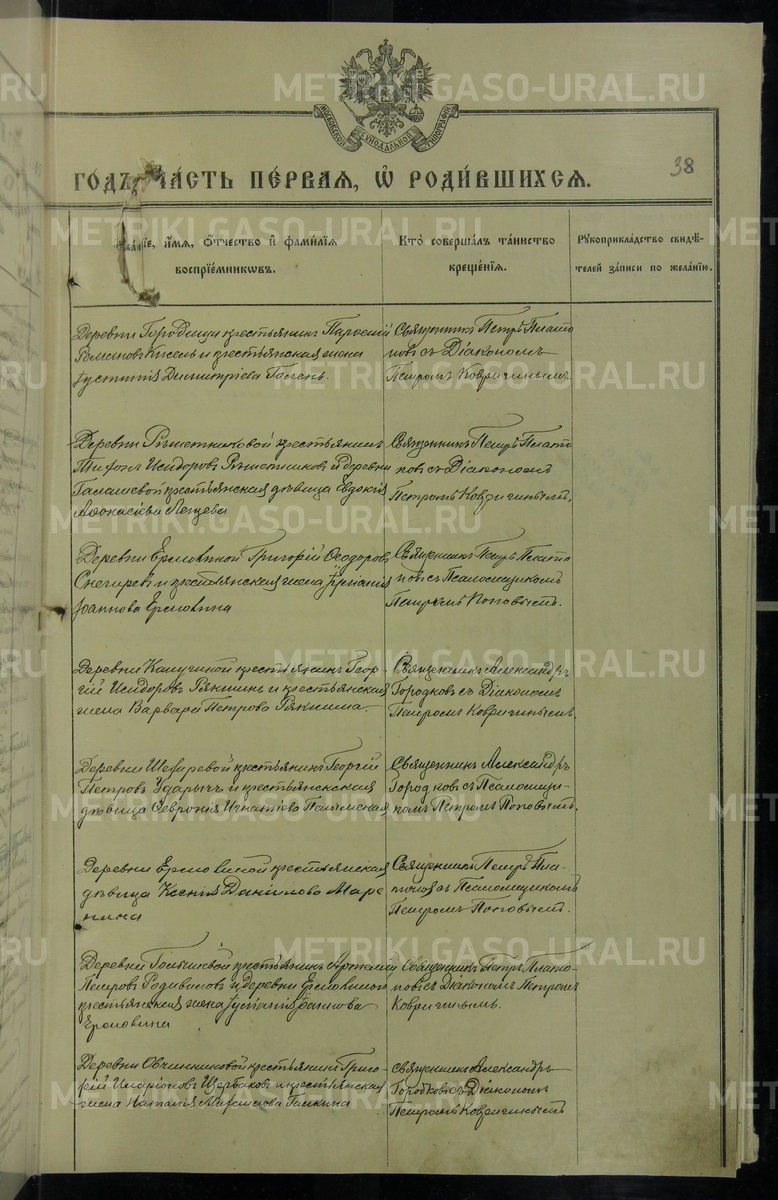 МОСКОВСКОЙ СѴНОДАЛЬНОЙ ТИПОГРАФІИ
38
ГОДЪ, ЧАСТЬ ПЕРВАЯ, Ѡ РОДИВШИХСЯ.
Званїе, имя, отчество и фамилїя воспрїемниковъ.
Кто совершалъ таинство крещенїя.
Рукоприкладство свидѣтелей записи по желанїю.
Деревни Городища крестьянинъ
Романовъ Кисель и крестьянская жена
Іустинія Димитріева
Священникъ Петръ Плато
новъ съ Діакономъ
Петромъ Ковригинымъ.
Деревни Рѣшетниковой крестьянинъ
Исидоровъ Рѣшетниковъ и деревни
Галашевой крестьянская дѣвица Евдокія
Священникъ Петръ Плато
новъ съ Діакономъ
Петромъ Ковригинымъ.
Деревни Ермовиной Григорій Ѳеодоровъ
Снегиревъ и крестьянская жена
Іоаннова Ермовина
Священникъ Петръ Плато
новъ съ Псаломщикомъ
Петромъ Поповымъ.
Деревни крестьянинъ Геор-
гій Исидоровъ Рякинъ и крестьянская
жена Варвара Петрова
Священникъ Александръ
Городковъ съ Діакономъ
Петромъ Ковригинымъ.
Деревни крестьянинъ Георгій
Петровъ и крестьянская
дѣвица Февронія Игнатіева
Священникъ Александръ
Городковъ съ Псаломщи-
комъ Петромъ Поповымъ.
Деревни Ермовиной крестьянская
дѣвица Ксенія Данилова
Священникъ Петръ Пла-
тоновъ съ Псаломщикомъ
Петромъ Поповымъ.
Деревни крестьянинъ Артемій
Петровъ и деревни Ермовиной
крестьянская жена Іоаннова
Ермовина
Священникъ Петръ Плато-
новъ съ Діакономъ Петромъ
Ковригинымъ.
Деревни Овчинниковой крестьянинъ Григо-
рій Иларіоновъ Щербаковъ и крестьянская
жена Наталія Галкина
Священникъ Александръ
Городковъ съ Діакономъ
Петромъ Ковригинымъ
METRIKI.GASO-URAL.RU